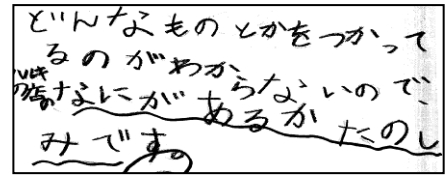 どんなものとかをつかって
るのがわからないので、
なにがあるかたのし
みです